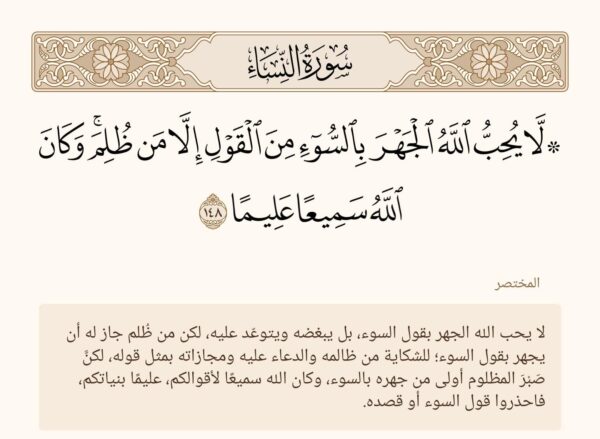 سُورَةُ النِّسَاءِ
۞ لَّا يُحِبُّ ٱللَّهُ ٱلْجَهْرَ بِٱلسُّوٓءِ مِنَ ٱلْقَوْلِ إِلَّا مَن ظُلِمَۚ وَكَانَ
ٱللَّهُ سَمِيعًا عَلِيمًا ١٤٨
المختصر
لا يحب الله الجهر بقول السوء، بل يبغضه ويتوعَد عليه، لكن من ظُلم جاز له أن
يجهر بقول السوء؛ للشكاية من ظالمه والدعاء عليه ومجازاته بمثل قوله، لكنَّ
صَبْرَ المظلوم أولى من جهره بالسوء، وكان الله سميعًا لأقوالكم، عليمًا بنياتكم،
فاحذروا قول السوء أو قصده.